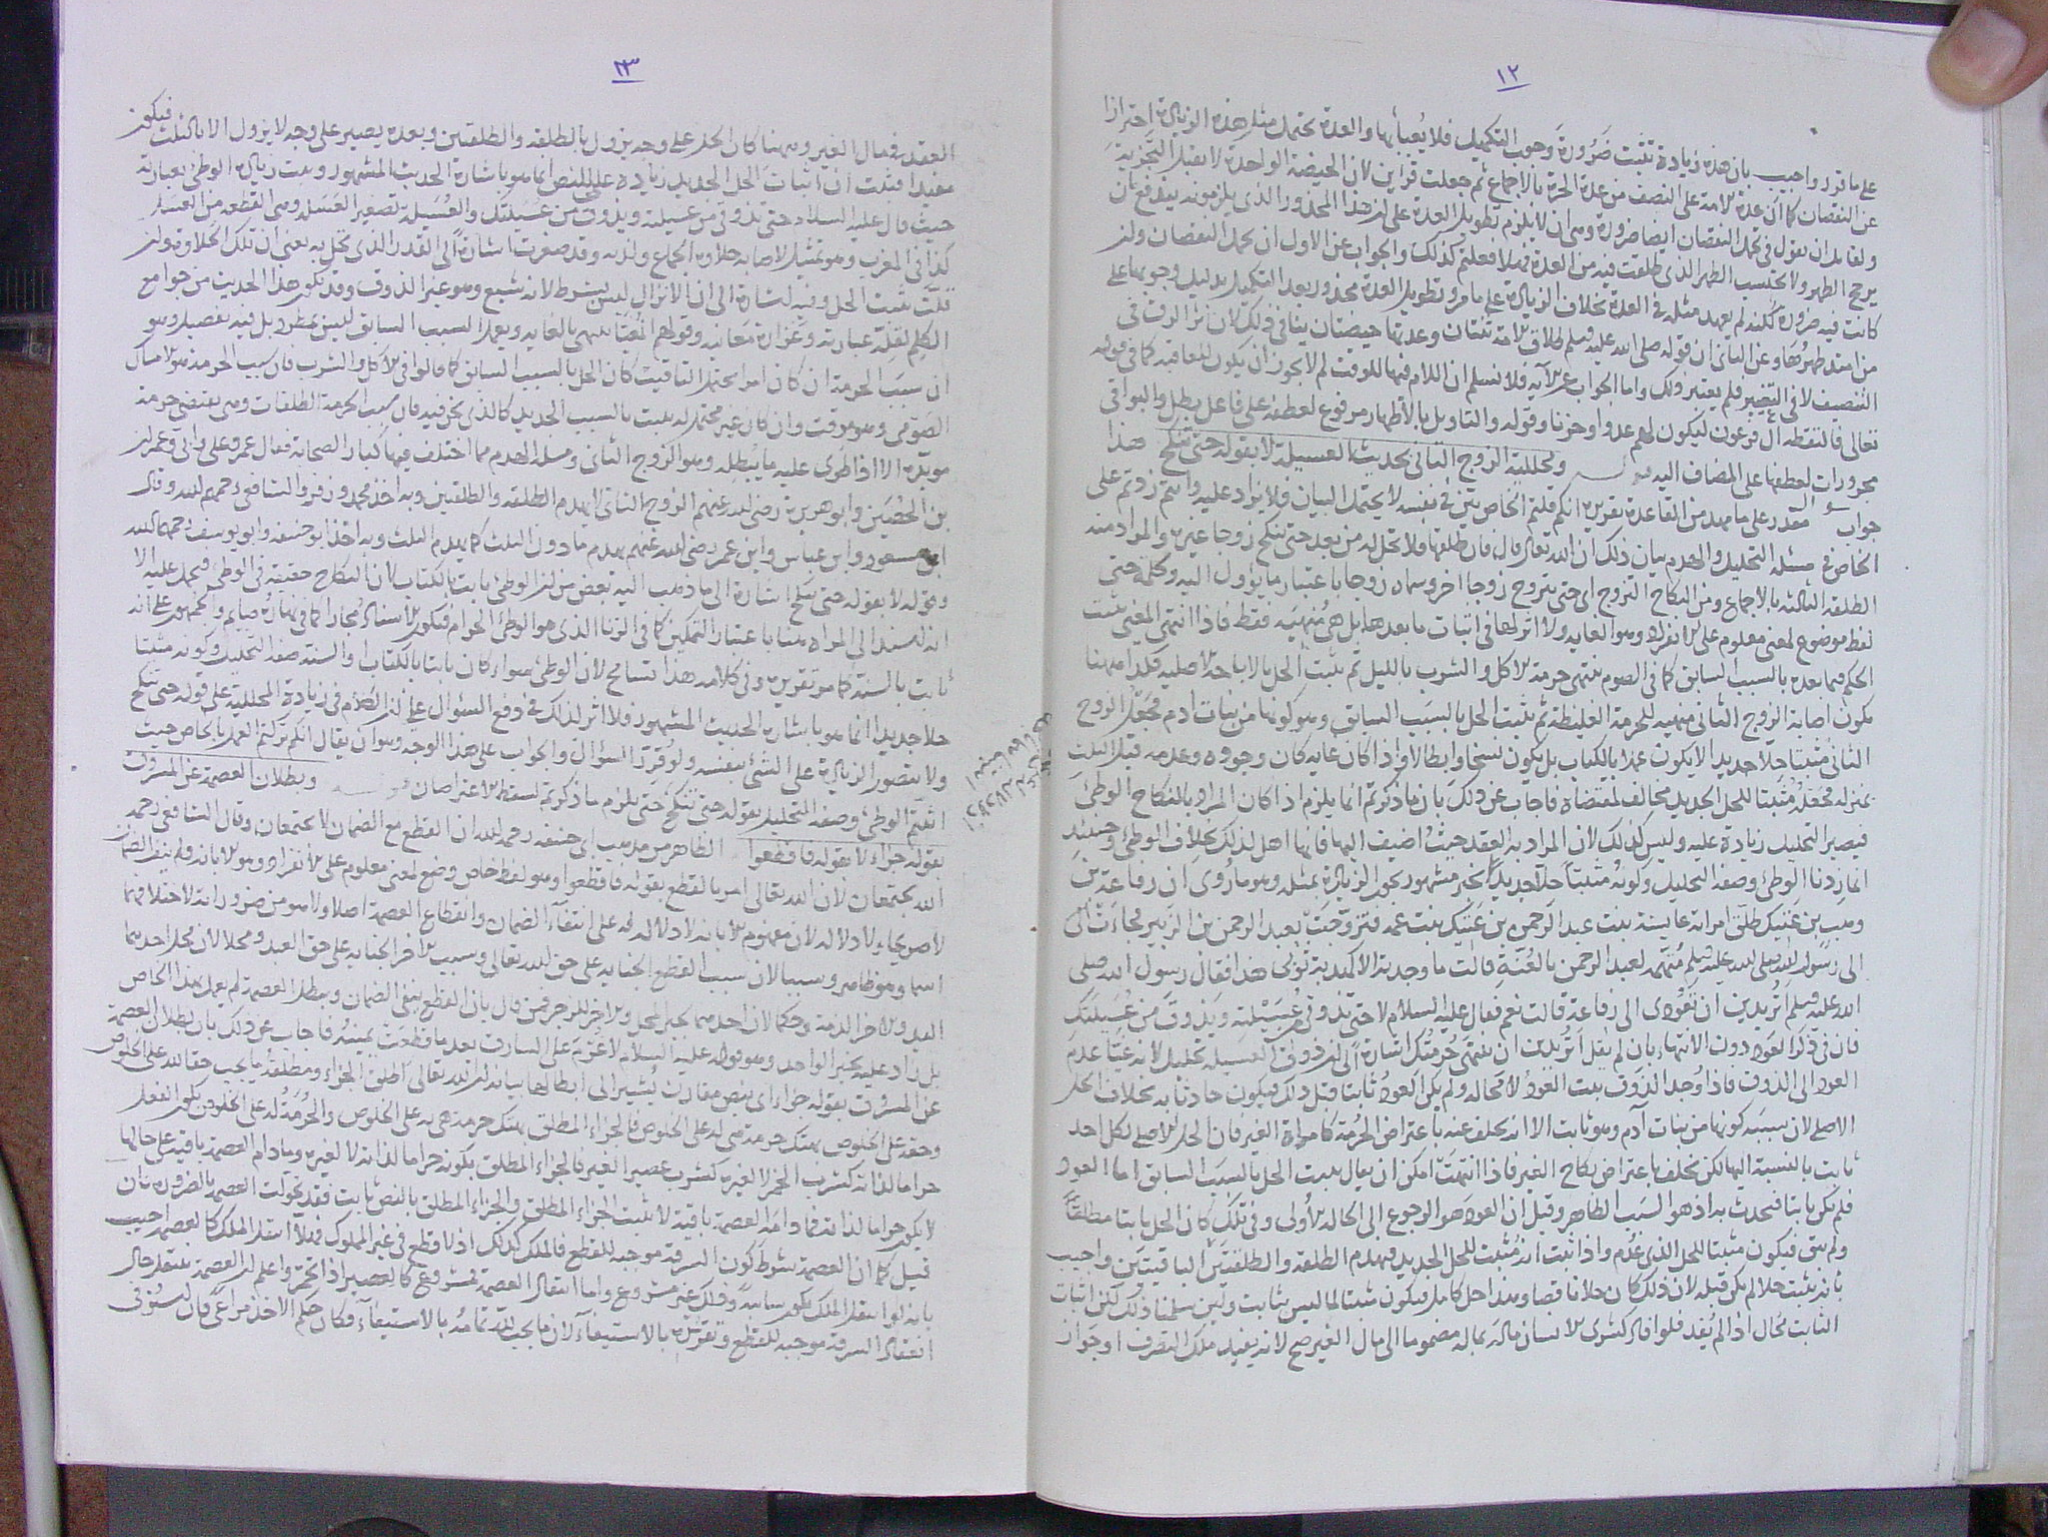 ١٢
على ما قرر واجيب بان هذه زيادة تثبت ضرورة وجوب التكميل فلا يعبأ بها والعدة تحتمل مثل هذه الزيادة احترازا
عن النقصان كما ان عدة الامة على النصف من عدة الحرة بالاجماع ثم جعلت قرأين لان الحيضة الواحدة لا يقبل التجزية
ولقائل ان يقول في تحمل النقصان ايضا ضرورة وهي ان لا يلزم تطويل العدة على ان هذا المحذور الذي يلزمونه يندفع بان
يرجح الطهر ولا يحتسب الطهر الذي طلقت فيه من العدة فهلا فعلتم كذلك والجواب عن الاول ان تحمل النقصان وان
كانت فيه ضرورة لكنه لم يعهد مثله في العدة بخلاف الزيادة على ما مر وتطويل العدة محذور بعد التكميل بدليل وجوبها على
من امتد طهرها وعن الثاني ان قوله صلى الله عليه وسلم طلاق الامة ثنتان وعدتها حيضتان ينافي ذلك لان اثر الرق في
التنصيف لا في التغيير فلم يعتبر ذلك واما الجواب عن الآية فلا نسلم ان اللام فيها للوقت لم لا يجوز ان يكون للعاقبة كما في قوله
تعالى فالتقطه آل فرعون ليكون لهم عدوا وحزنا وقوله والتاويل بالاطهار مرفوع لعطفه على فاعل بطل والبواقي
مجرورات لعطفها على المضاف اليه قوله ومحللية الزوج الثاني بحديث العسيلة لا بقوله حتى تنكح هذا
جواب سؤال مقدر على ما مهد من القاعدة تقريره انكم قلتم الخاص بين في نفسه لا يحتمل البيان فلا يزاد عليه وانتم زدتم على
الخاص في مسئلة التحليل والهدم بيان ذلك ان الله تعالى قال فان طلقها فلا تحل له من بعد حتى تنكح زوجا غيره والمراد منه
الطلقة الثالثة بالاجماع ومن النكاح التزوج اي حتى يتزوج زوجا اخر وسماه زوجا باعتبار ما يؤول اليه وكلمة حتى
لفظ موضوع لمعنى معلوم على الانفراد وهو الغاية ولا اثر لها في اثبات ما بعدها بل هي منهية فقط فاذا انتهى المغيى يثبت
الحكم فيما بعده بالسبب السابق كما في الصوم تنتهي حرمة الاكل والشرب بالليل ثم يثبت الحل بالاباحة الاصلية فكذا ههنا
تكون اصابة الزوج الثاني منهية للحرمة الغليظة ثم يثبت الحل بالسبب السابق وهو كونها من بنات ادم فجعل الزوج
الثاني مثبتا حلا جديدا لا يكون عملا بالكتاب بل يكون نسخا وابطالا واذا كان غاية كان وجوده وعدمه قبل الثلث
بمنزلة فجعله مثبتا للحل الجديد مخالف لمقتضاه فاجاب عن ذلك بان ما ذكرتم انما يلزم اذا كان المراد بالنكاح الوطئ
فيصير التحليل زيادة عليه وليس كذلك لان المراد به العقد حيث اضيف اليها فانها اهل لذلك بخلاف الوطئ وحينئذ
انما زدنا الوطئ وصفة التحليل وكونه مثبتا حلا جديدا بخبر مشهور يجوز الزيادة بمثله وهو ما روى ان رفاعة بن
وهب بن عتيك طلق امراته عايشة بنت عبد الرحمن بن عتيك بنت عمه فتزوجت بعبد الرحمن بن الزبير فجاءت
الى رسول الله صلى الله عليه وسلم متهمة لعبد الرحمن بالعنة قالت ما وجدته الا كهدبة ثوبي هذا فقال رسول الله صلى
الله عليه وسلم اتريدين ان تعودي الى رفاعة قالت نعم فقال عليه السلام لا حتى تذوقي عسيلته ويذوق من عسيلتك
فان في ذكر العود دون الانتهاء بان لم يقل اتريدين ان تنتهي حرمتك اشارة الى ان ذوق العسيلة تحليل لانه غيا عدم
العود الى الذوق فاذا وجد الذوق يثبت العود لا محالة ولم يكن العود ثابتا قبل ذلك فيكون حادثا به بخلاف الحل
الاصلي لان سببه كونها من بنات آدم وهو ثابت الا انه تخلف عنه باعتراض الحرمة كامراة الغير فان الحل الاصلي لكل احد
ثابت بالنسبة اليها لكن تخلف باعتراض نكاح الغير فاذا انتهت امكن ان يقال يثبت الحل بالسبب السابق اما العود
فلم يكن ثابتا فيحدث به اذ هو السبب الظاهر وقيل ان العود هو الرجوع الى الحالة الاولى وفي تلك كان الحل ثابتا مطلقا
ولم يبق فيكون مثبتا للحل الذي عدم واذا ثبت انه مثبت للحل الجديد فيهدم الطلقة والطلقتين الباقيتين واجيب
بانه يثبت حلا لم يكن قبله لان ذلك كان حلا ناقصا وهذا حل كامل فيكون مثبتا لما ليس بثابت ولئن سلمنا ذلك لكن اثبات
الثابت محال اذا لم يفد فلو افاد كشرى الانسان ماله بماله مضموما الى مال الغير صح لانه يفيد ملك التصرف او جواز
٢٣
العقد في مال الغير وههنا كان الحل على وجه يزول بالطلقة والطلقتين وبعده يصير على وجه لا يزول الا بالثلث فيكون
مفيدا فثبت ان اثبات الحل الجديد زيادة على النص انما هو باشارة الحديث المشهور وبيت زيادة الوطئ بعبارته
حيث قال عليه السلام حتى تذوقي من عسيلته ويذوق من عسيلتك والعسيلة تصغير العسلة وهي القطعة من العسل
كذا في المغرب وهو تمثيل لاصابة حلاوة الجماع ولذته وقد صغرت اشارة الى القدر الذي تحل به يعني ان تلك الحلاوة وان
قلت يثبت الحل وفيه اشارة الى ان الانزال ليس بشرط لانه شبع وهو غير الذوق وقد يكون هذا الحديث من جوامع
الكلم لقلة عبارته وغزارة معانيه وقولهم المغيا ينتهي بالغاية ويعمل السبب السابق ليس بمطرد بل فيه تفصيل وهو
ان سبب الحرمة ان كان امرا يحتمل التاقيت كان الحل بالسبب السابق كما قالوا في الاكل والشرب فان سبب الحرمة هو الامساك
الصومي وهو موقت وان كان غير محتمل له يثبت بالسبب الجديد كالذي نحن فيه فان سبب الحرمة الطلقات وهي يقتضي حرمة
مؤبدة الا اذا طرى عليه ما يبطله وهو الزوج الثاني ومسئلة الهدم مما اختلف فيها كبار الصحابة فقال عمر وعلي وابي وعمران
بن الحصين وابو هريرة رضي الله عنهم الزوج الثاني لا يهدم الطلقة والطلقتين وبه اخذ محمد وزفر والشافعي رحمهم الله وقال
ابن مسعود وابن عباس وابن عمر رضي الله عنهم يهدم ما دون الثلث كما يهدم الثلث وبه اخذ ابو حنيفة وابو يوسف رحمهما الله
وقوله لا بقوله حتى تنكح اشارة الى ما ذهب اليه بعض من ان الوطئ ثابت بالكتاب لان النكاح حقيقة في الوطئ فيحمل عليه الا
انه اسند الى المراة ههنا باعتبار التمكين كما في الزنا الذي هو الوطئ الحرام فيكون الاسناد مجازا كما في نهاره صايم والجمهور على انه
ثابت بالسنة كما مر تقريره وفي كلامه هذا تسامح لان الوطئ سواء كان ثابتا بالكتاب او السنة صفة التحليل وكونه مثبتا
حلا جديدا انما هو باشارة الحديث المشهور فلا اثر لذلك في دفع السؤال على ان الكلام في زيادة المحللية على قوله حتى تنكح
ولا يتصور الزيادة على الشئ بنفسه ولو قرر السؤال والجواب على هذا الوجه وهو ان يقال انكم تركتم العمل بالخاص حيث
اثبتم الوطئ وصفة التحليل بقوله حتى تنكح حتى يلزم ما ذكرتم لسقط الاعتراضان قوله وبطلان العصمة عن المسروق
بقوله جزاء لا بقوله فاقطعوا الظاهر من مذهب ابي حنيفة رحمه الله ان القطع مع الضمان لا يجتمعان وقال الشافعي رحمه
الله يجتمعان لان الله تعالى امر بالقطع بقوله فاقطعوا وهو لفظ خاص وضع لمعنى معلوم على الانفراد وهو الابانة ولم ينف الضمان
لا صريحا ولا دلالة لان مفهوم الابانة لا دلالة له على انتفاء الضمان وانقطاع العصمة اصلا ولا هو من ضروراته لاختلافهما
اسما وهو ظاهر وسببا لان سبب القطع الجناية على حق الله تعالى وسبب الاخر الجناية على حق العبد ومحلا لان محل احدهما
اليد والاخر الذمة وحكما لان احدهما لجبر المحل والاخر للزجر فمن قال بان القطع ينفي الضمان ويبطل العصمة لم يعمل بهذا الخاص
بل زاد عليه بخبر الواحد وهو قوله عليه السلام لا غرم على السارق بعد ما قطعت يمينه فاجاب عن ذلك بان بطلان العصمة
عن المسروق بقوله جزاء اي بنص مقارن يشير الى ابطالها بيانه ان الله تعالى اطلق الجزاء ومطلقه ما يجب حقا لله على الخلوص
وحقه على الخلوص بهتك حرمة هي له على الخلوص فالجزاء المطلق بهتك حرمة هي له على الخلوص والحرمة له على الخلوص يكون الفعل
حراما لذاته كشرب الخمر لا لغيره كشرب عصير الغير فالجزاء المطلق بكونه حراما لذاته لا لغيره وما دام العصمة باقية على حالها
لا يكون حراما لذاته فما دام العصمة باقية لا يثبت الجزاء المطلق والجزاء المطلق بالنص ثابت فقد تحولت العصمة بالضرورة فان
قيل كما ان العصمة شرط كون السرقة موجبة للقطع فالملك كذلك اذ لا قطع في غير المملوك فهلا انتقل الملك كالعصمة اجيب
بانه لو انتقل الملك يكون سائبة وذلك غير مشروع واما انتقال العصمة فمشروع كالعصير اذا تخمر واعلم ان العصمة ينتقل حال
انعقاد السرقة موجبة للقطع وتقرره بالاستيفاء لان ما يجب لله تمامه بالاستيفاء فكان حكم الاخذ مراعى فان استوفى